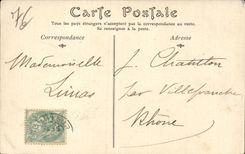 Carte Postale
Tous les pays étrangers n'acceptent pas la correspondance au verso.
Se renseigner à la poste.
Correspondance
Adresse
Mademoiselle J. Chatillon
Limas
par Villefranche
Rhône